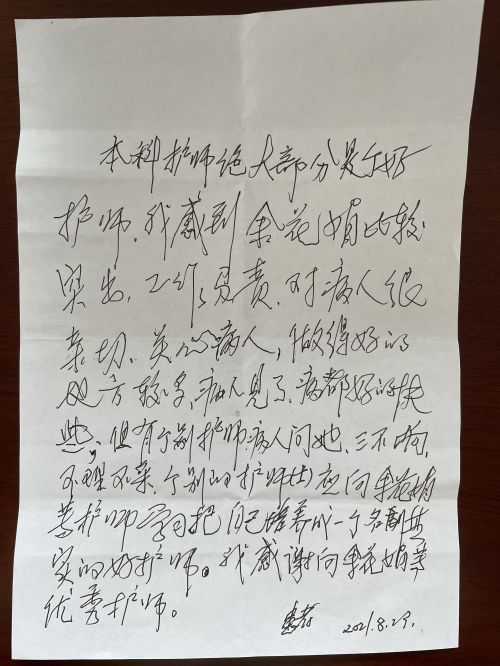 本科护师绝大部分是个好
护师。我感到余花娟比较
突出。工作负责。对病人很
亲切。关心病人，做得好的
地方较多，病人见了、病都好的快
些。但有个别护师、病人问她、三不响，
不理不采，个别的护师(士)应向余花娟
等护师学习把自己培养成一个名副其
实的好护师。我感谢向余花娟等
优秀护师。
患者 2021.8.29.